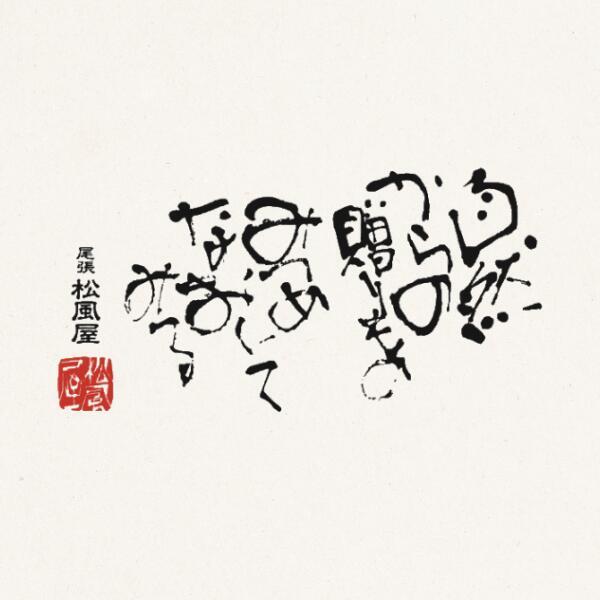 自然
からの
贈りもの
みつめて
なお
みる
尾張
松風屋
松風屋